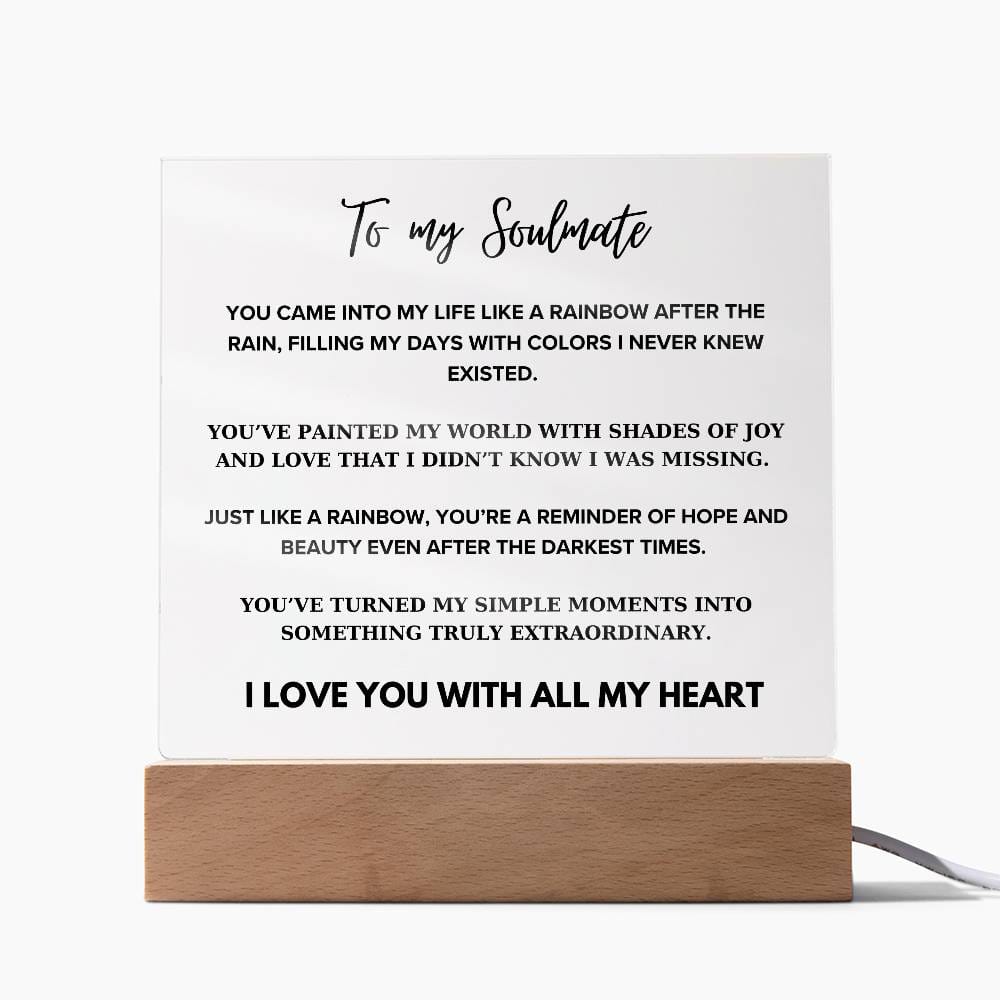 To my Soulmate
YOU CAME INTO MY LIFE LIKE A RAINBOW AFTER THE
RAIN, FILLING MY DAYS WITH COLORS I NEVER KNEW
EXISTED.
YOU’VE PAINTED MY WORLD WITH SHADES OF JOY
AND LOVE THAT I DIDN’T KNOW I WAS MISSING.
JUST LIKE A RAINBOW, YOU’RE A REMINDER OF HOPE AND
BEAUTY EVEN AFTER THE DARKEST TIMES.
YOU’VE TURNED MY SIMPLE MOMENTS INTO
SOMETHING TRULY EXTRAORDINARY.
I LOVE YOU WITH ALL MY HEART